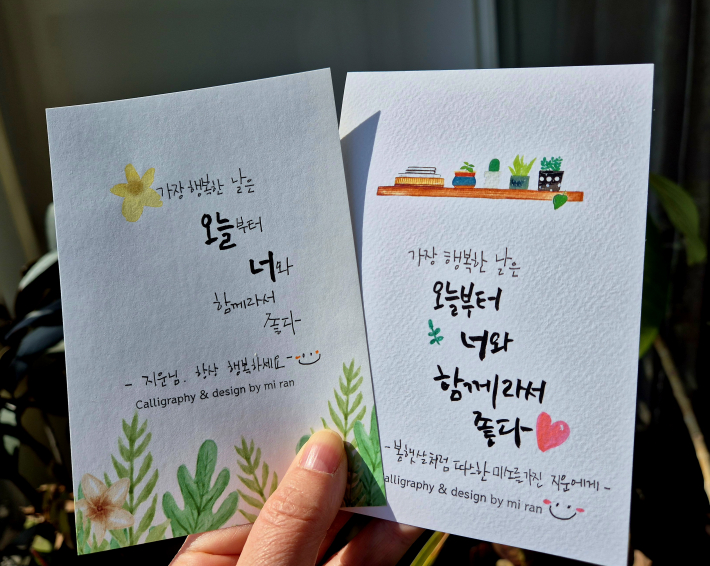 가장 행복한 날은
오늘부터
너와
함께라서
좋다
- 지운님. 항상 행복하세요 -
Calligraphy & design by mi ran
가장 행복한 날은
오늘부터
너와
함께라서
좋다
- 봄햇살처럼 따스한 미소를 가진 지운에게 -
alligraphy & design by mi ran